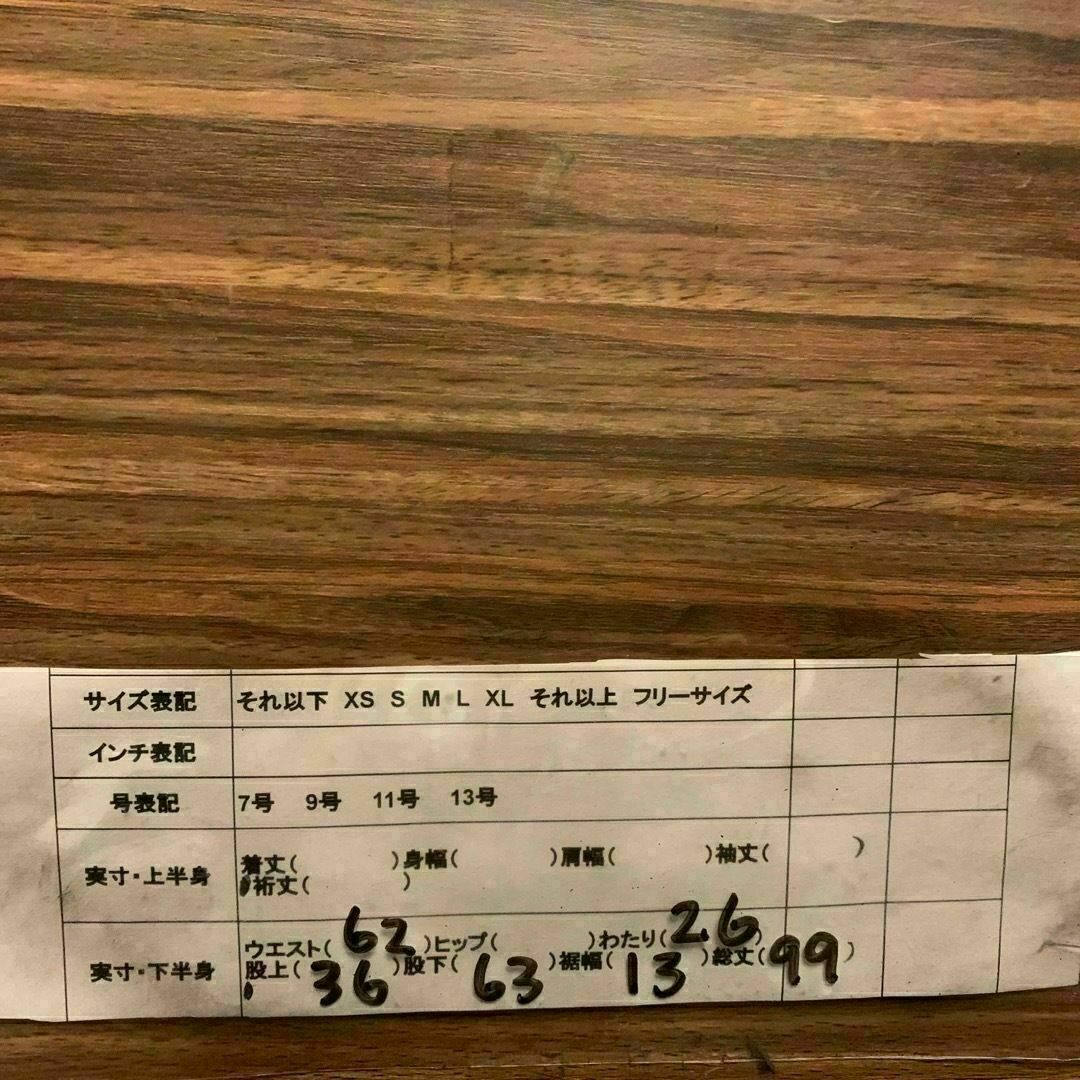 サイズ表記 それ以下 XS S M L XL それ以上 フリーサイズ
インチ表記
号表記 7号 9号 11号 13号
実寸・上半身 着丈( )身幅( )肩幅( )袖丈( )
裄丈( )
実寸・下半身 ウエスト( 62 )ヒップ( )わたり( 26 )
股上( 36 )股下( 63 )裾幅( 13 )総丈( 99 )